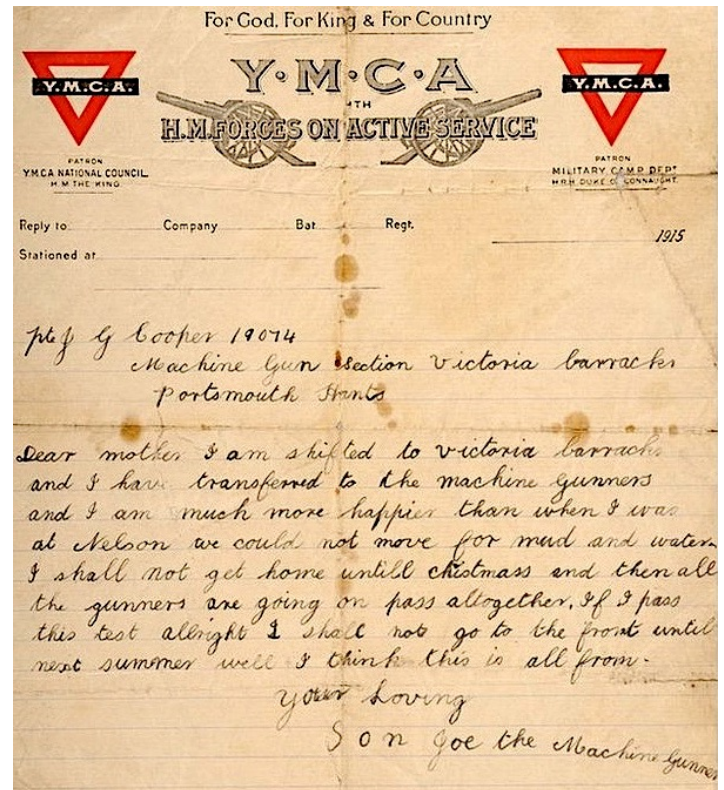 For God, For King & For Country
Y.M.C.A.
Y·M·C·A
WITH
H.M. FORCES ON ACTIVE SERVICE
Y.M.C.A.
PATRON
Y.M.C.A NATIONAL COUNCIL.
H.M THE KING.
PATRON
MILITARY CAMP DEPT
H.R.H. DUKE OF CONNAUGHT.
Reply to Company Bat Regt.
1915
Stationed at
pte J G Cooper 19074
Machine Gun section Victoria barracks
Portsmouth Hants
Dear mother I am shifted to victoria barracks
and I have transferred to the machine gunners
and I am much more happier than when I was
at Nelson we could not move for mud and water
I shall not get home untill chistmass and then all
the gunners are going on pass altogether. If I pass
this test allright I shall not go to the front until
next summer well I think this is all from.
Your Loving
Son Joe the Machine Gunner